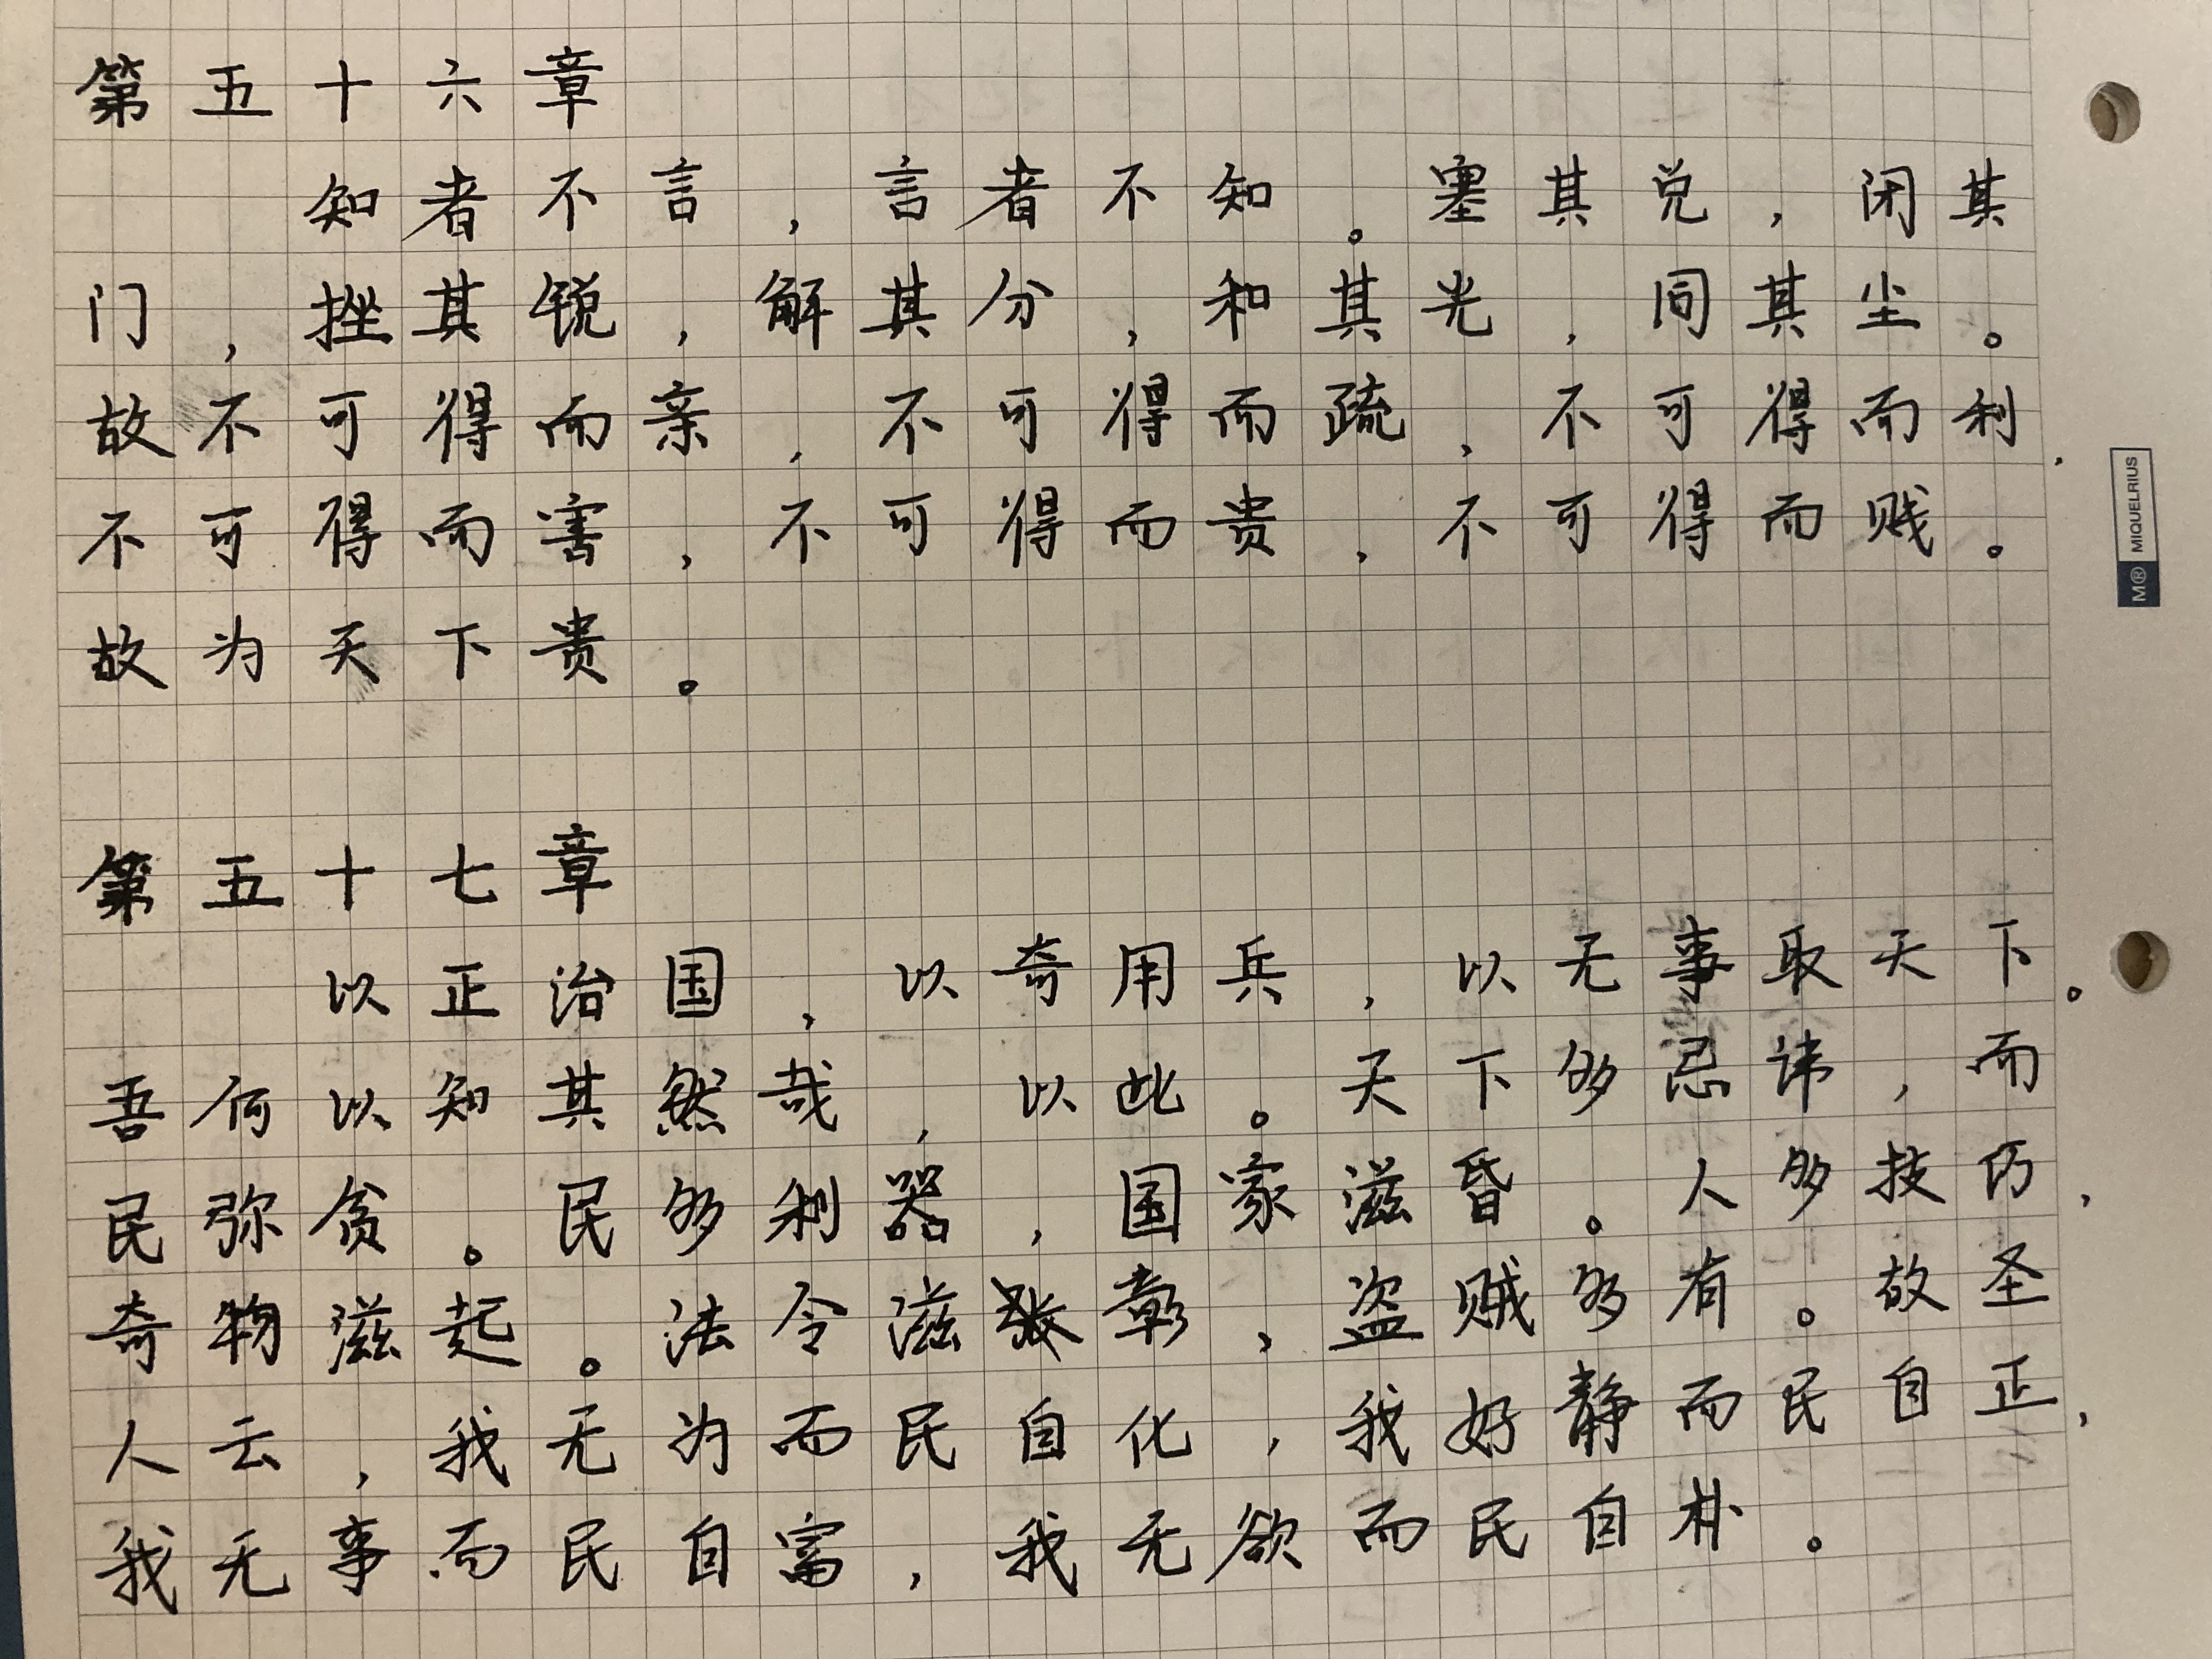 第五十六章
知者不言，言者不知。塞其兑，闭其
门，挫其锐，解其分，和其光，同其尘。
故不可得而亲，不可得而疏，不可得而利，
不可得而害，不可得而贵，不可得而贱。
故为天下贵。
第五十七章
以正治国，以奇用兵，以无事取天下。
吾何以知其然哉，以此。天下多忌讳，而
民弥贫。民多利器，国家滋昏。人多技巧，
奇物滋起。法令滋彰，盗贼多有。故圣
人云，我无为而民自化，我好静而民自正，
我无事而民自富，我无欲而民自朴。
M® MIQUELRIUS